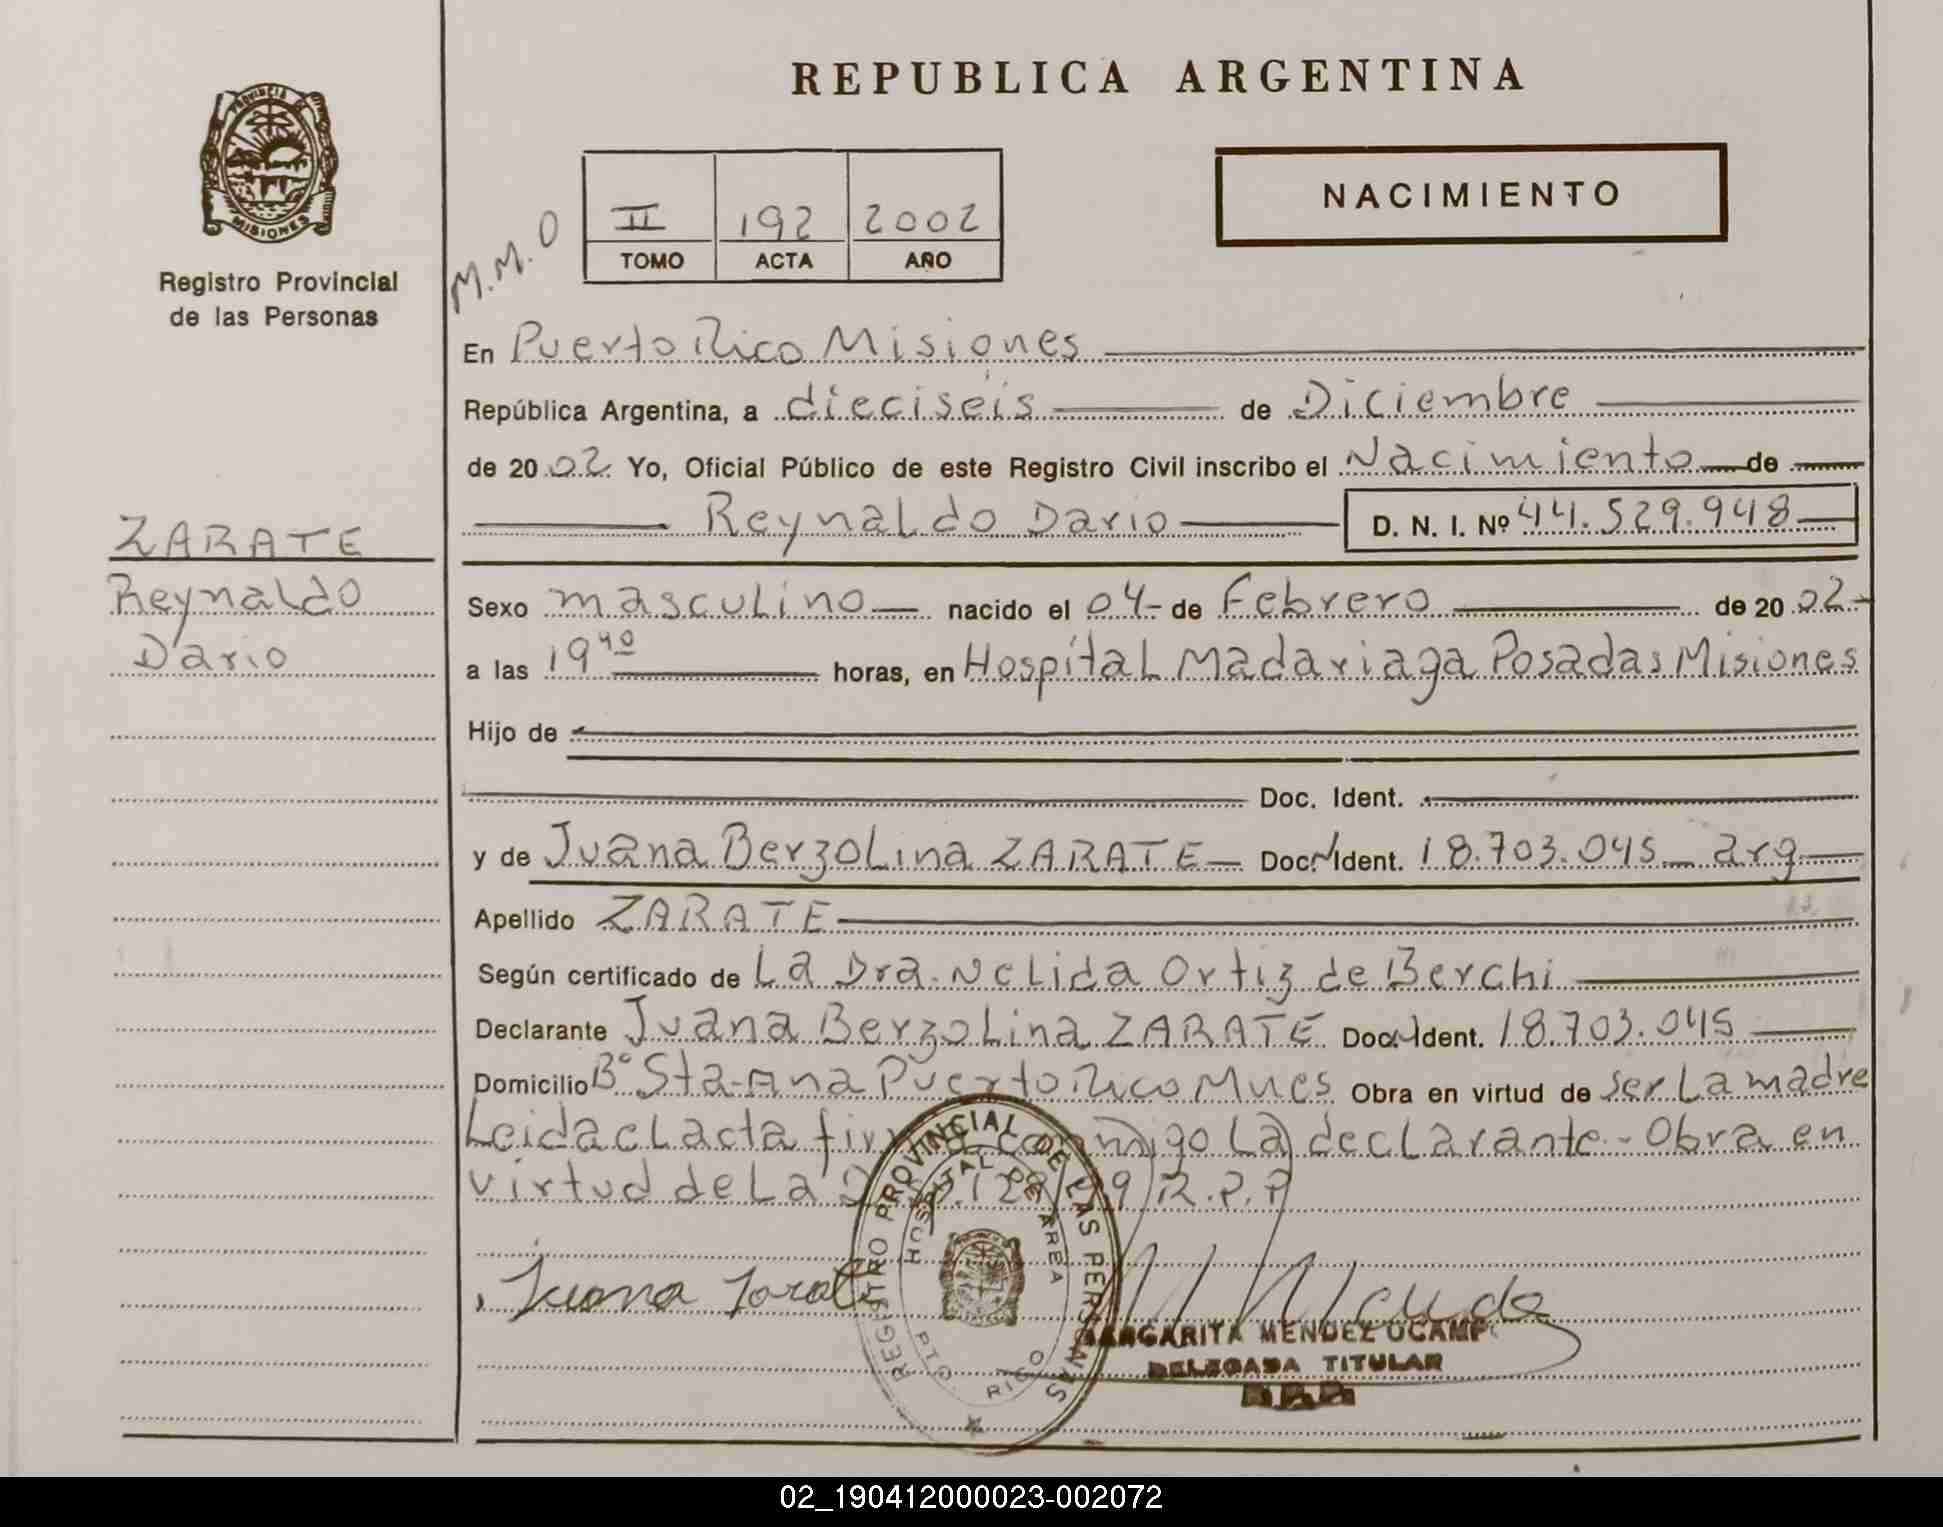 REPUBLICA ARGENTINA
PROVINCIA
MISIONES
Registro Provincial
de las Personas
NACIMIENTO
II 192 2002
TOMO ACTA AÑO
M.M.O
En Puerto Rico Misiones
República Argentina, a dieciséis de Diciembre
de 2002. Yo, Oficial Público de este Registro Civil inscribo el Nacimiento de
Reynaldo Dario D. N. I. Nº 44.529.948
ZARATE
Reynaldo
Dario
Sexo masculino nacido el 04 de Febrero de 2002
a las 19 40 horas, en Hospital Madariaga Posadas Misiones
Hijo de
Doc. Ident.
y de Juana Berzolina ZARATE Doc. Ident. 18.703.045 arg
Apellido ZARATE
Según certificado de La Dra. Nelida Ortiz de Berchi
Declarante Juana Berzolina ZARATE Doc. Ident. 18.703.045
Domicilio B° Sta. Ana Puerto Rico Mnes Obra en virtud de ser la madre
Leida el acta firma conmigo la declarante - Obra en
virtud de La R.P.P
REGISTRO PROVINCIAL DE LAS PERSONAS
HOSPITAL DE AREA
PTO. RICO
Juana Zarate
MARGARITA MENDEZ OCAMPO
DELEGADA TITULAR
02_190412000023-002072